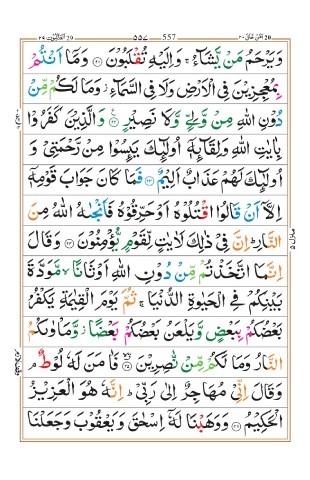 العنكبوت ٢٩ ٥٥٧ 557 امن خلق ٢٠
وَيَرْحَمُ مَنْ يَّشَآءُ ۚ وَاِلَيْهِ تُقْلَبُوْنَ ﴿۲۱﴾ وَمَآ اَنْتُمْ
بِمُعْجِزِيْنَ فِى الْاَرْضِ وَلَا فِى السَّمَآءِ ۡ وَمَا لَكُمْ مِّنْ
دُوْنِ اللّٰهِ مِنْ وَّلِىٍّ وَّلَا نَصِيْرٍ ﴿۲۲﴾ وَالَّذِيْنَ كَفَرُوْا
بِاٰيٰتِ اللّٰهِ وَلِقَآئِهٖٓ اُولٰٓئِكَ يَئِسُوْا مِنْ رَّحْمَتِىْ وَ
اُولٰٓئِكَ لَهُمْ عَذَابٌ اَلِيْمٌ ﴿۲۳﴾ فَمَا كَانَ جَوَابَ قَوْمِهٖٓ
اِلَّآ اَنْ قَالُوا اقْتُلُوْهُ اَوْ حَرِّقُوْهُ فَاَنْجٰىهُ اللّٰهُ مِنَ
النَّارِ ؕ اِنَّ فِىْ ذٰلِكَ لَاٰيٰتٍ لِّقَوْمٍ يُّؤْمِنُوْنَ ﴿۲۴﴾ وَقَالَ
اِنَّمَا اتَّخَذْتُمْ مِّنْ دُوْنِ اللّٰهِ اَوْثَانًا ۙ مَّوَدَّةَ
بَيْنِكُمْ فِى الْحَيٰوةِ الدُّنْيَا ۚ ثُمَّ يَوْمَ الْقِيٰمَةِ يَكْفُرُ
بَعْضُكُمْ بِبَعْضٍ وَّيَلْعَنُ بَعْضُكُمْ بَعْضًا ۡ وَّمَاْوٰىكُمُ
النَّارُ وَمَا لَكُمْ مِّنْ نّٰصِرِيْنَ ﴿۲۵﴾ فَاٰمَنَ لَهٗ لُوْطٌ ۘ
وَقَالَ اِنِّىْ مُهَاجِرٌ اِلٰى رَبِّىْ ؕ اِنَّهٗ هُوَ الْعَزِيْزُ
الْحَكِيْمُ ﴿۲۶﴾ وَوَهَبْنَا لَهٗٓ اِسْحٰقَ وَيَعْقُوْبَ وَجَعَلْنَا